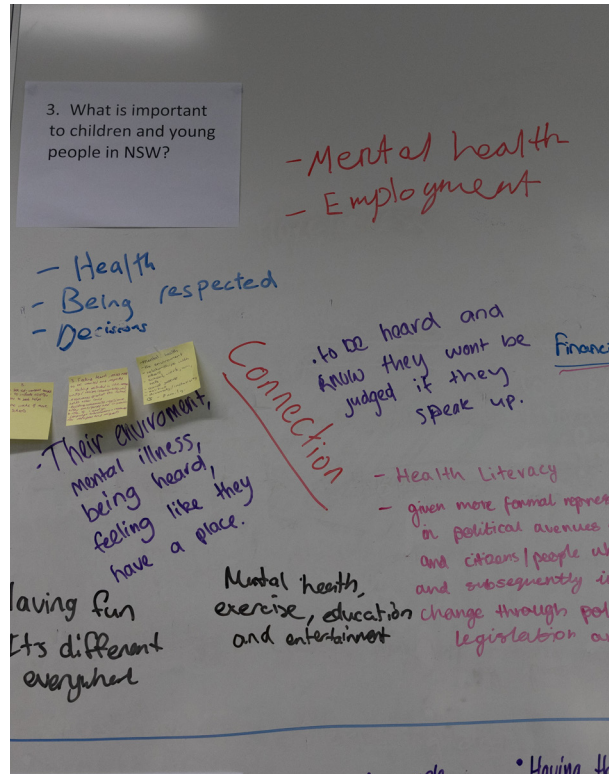 3. What is important
to children and young
people in NSW?
- Mental health
- Employment
- Health
- Being respected
- Decisions
Connection
. to be heard and
know they wont be
judged if they
speak up.
Financ
. Their enviroment,
mental illness,
being heard,
feeling like they
have a place.
- Health Literacy
- given more formal repres
in political avenues
and citizens/people wh
and subsequently i
change through pol
legislation a
Mental health,
exercise, education
and entertainment
Having fun
Its different
everywhere
• Having th